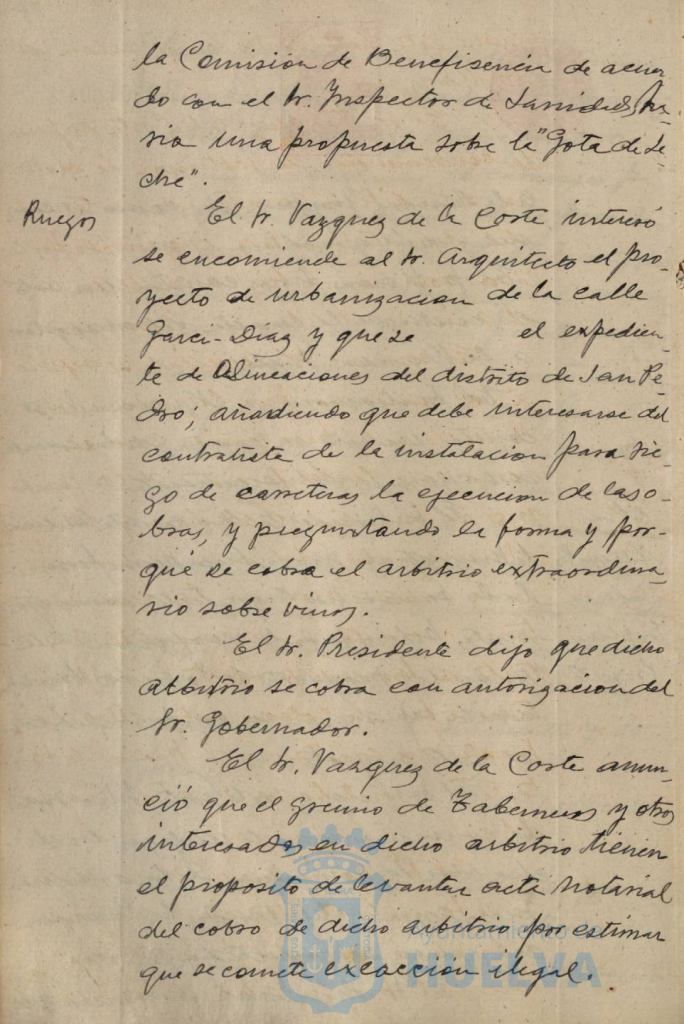 la Comision de Beneficencia de acuer-
do con el Sr. Inspector de Sanidad, ha-
ria una propuesta sobre la "Gota de Le-
che".
Ruegos
El Sr. Vazquez de la Corte interesó
se encomiende al Sr. Arquitecto el pro-
yecto de urbanizacion de la calle
Garci-Diaz y que se el expedien-
te de Alineaciones del distrito de San Pe-
dro; añadiendo que debe interesarse del
contratista de la instalacion para rie-
go de carreteras la ejecucion de las o-
bras, y preguntando la forma y por-
qué se cobra el arbitrio extraordina-
rio sobre vinos.
El Sr. Presidente dijo que dicho
arbitrio se cobra con autorizacion del
Sr. Gobernador.
El Sr. Vazquez de la Corte anun-
ció que el gremio de Taberneros y otros
interesados en dicho arbitrio tienen
el proposito de levantar acta notarial
del cobro de dicho arbitrio por estimar
que se comete exacción ilegal.
Ayuntamiento de
HUELVA